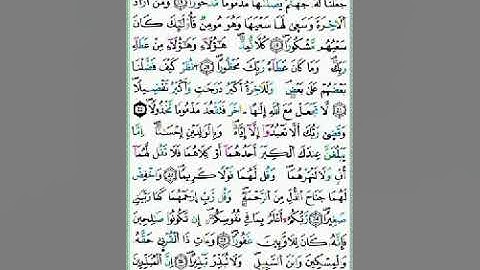 جعلنا له جهنم يصلىها مذموما مدحورا ۝ ومن أراد
الآخرة وسعى لها سعيها وهو مؤمن فأولئك كان
سعيهم مشكورا ۝ كلا نمد هؤلاء وهؤلاء من عطاء
ربك وما كان عطاء ربك محظورا ۝ انظر كيف فضلنا
بعضهم على بعض وللآخرة أكبر درجات وأكبر تفضيلا
۝ لا تجعل مع الله إلها آخر فتقعد مذموما مخذولا ۝
وقضى ربك ألا تعبدوا إلا إياه وبالوالدين إحسانا إما
يبلغن عندك الكبر أحدهما أو كلاهما فلا تقل لهما
أف ولا تنهرهما وقل لهما قولا كريما ۝ واخفض
لهما جناح الذل من الرحمة وقل رب ارحمهما كما ربياني
صغيرا ۝ ربكم أعلم بما في نفوسكم إن تكونوا صالحين
فإنه كان للأوابين غفورا ۝ وءات ذا القربى حقه
والمسكين وابن السبيل ولا تبذر تبذيرا ۝ إن المبذرين